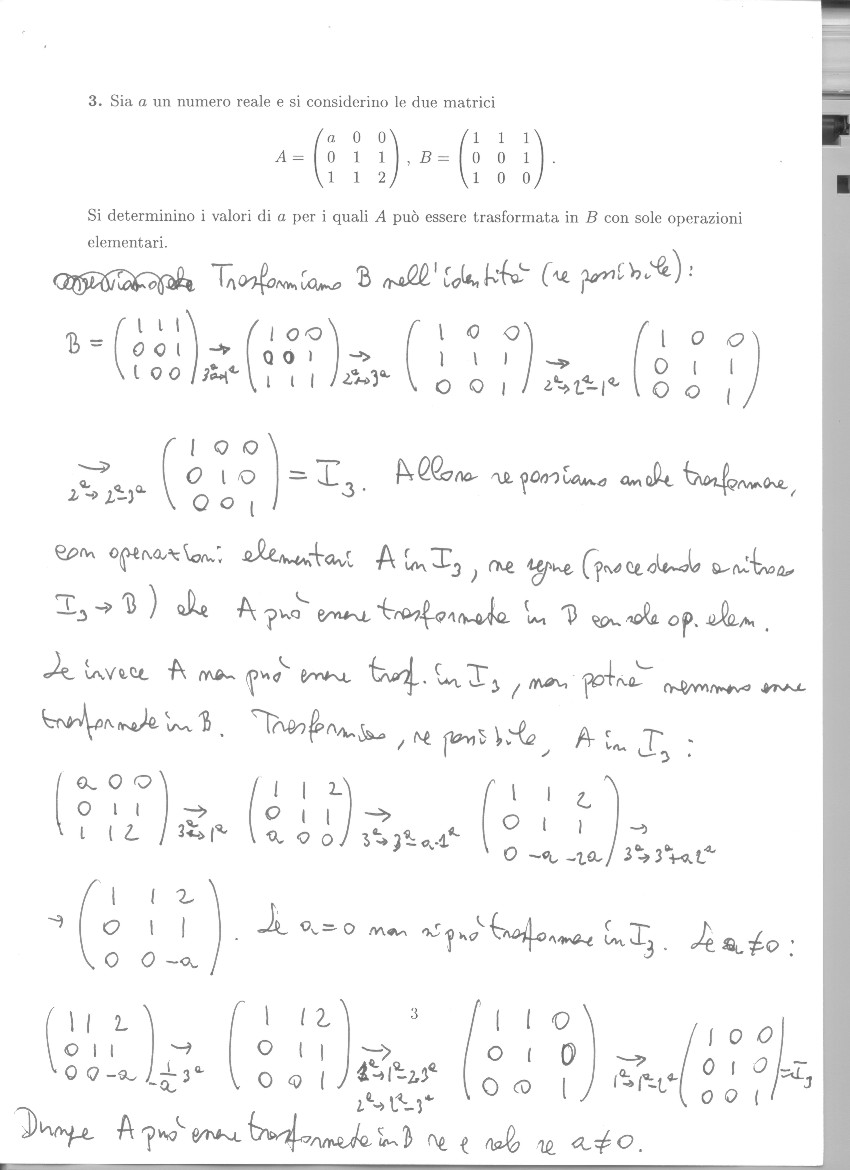 3. Sia a un numero reale e si considerino le due matrici
A = ( a 0 0 ; 0 1 1 ; 1 1 2 ) , B = ( 1 1 1 ; 0 0 1 ; 1 0 0 ) .
Si determinino i valori di a per i quali A può essere trasformata in B con sole operazioni
elementari.
Trasformiamo B nell'identità (se possibile):
B = ( 1 1 1 ; 0 0 1 ; 1 0 0 ) → 3ª↔1ª ( 1 0 0 ; 0 0 1 ; 1 1 1 ) → 2ª↔3ª ( 1 0 0 ; 1 1 1 ; 0 0 1 ) → 2ª→2ª-1ª ( 1 0 0 ; 0 1 1 ; 0 0 1 )
→ 2ª→2ª-3ª ( 1 0 0 ; 0 1 0 ; 0 0 1 ) = I₃. Allora se possiamo anche trasformare,
con operazioni elementari A in I₃, ne segue (procedendo a ritroso
I₃ → B) che A può essere trasformata in B con sole op. elem.
Se invece A non può essere trasf. in I₃, non potrà nemmeno essere
trasformata in B. Trasformiamo, se possibile, A in I₃ :
( a 0 0 ; 0 1 1 ; 1 1 2 ) → 3ª↔1ª ( 1 1 2 ; 0 1 1 ; a 0 0 ) → 3ª→3ª-a·1ª ( 1 1 2 ; 0 1 1 ; 0 -a -2a ) → 3ª→3ª+a2ª
→ ( 1 1 2 ; 0 1 1 ; 0 0 -a ) . Se a=0 non si può trasformare in I₃. Se a≠0 :
( 1 1 2 ; 0 1 1 ; 0 0 -a ) → -1/a 3ª ( 1 1 2 ; 0 1 1 ; 0 0 1 ) → 1ª→1ª-2·3ª 2ª→2ª-3ª ( 1 1 0 ; 0 1 0 ; 0 0 1 ) → 1ª→1ª-2ª ( 1 0 0 ; 0 1 0 ; 0 0 1 ) = I₃
3
Dunque A può essere trasformata in B se e solo se a≠0.